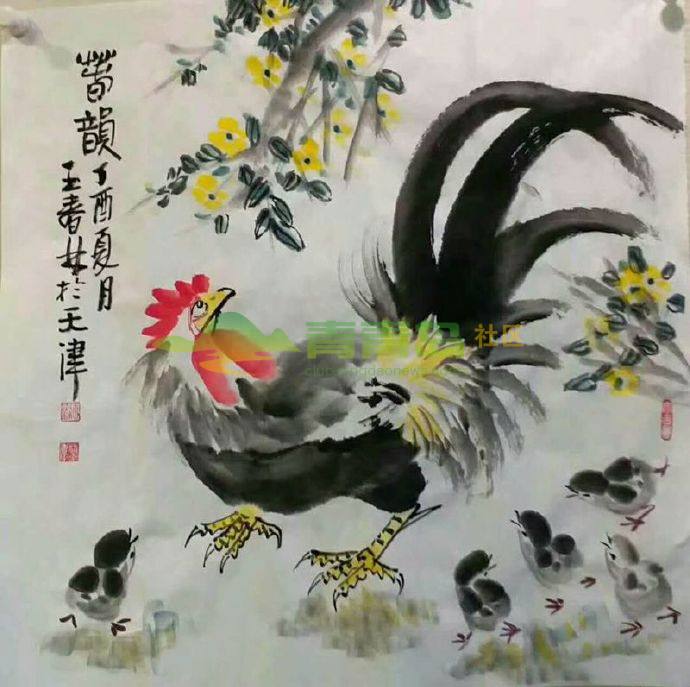 萅韻丁酉夏月
王春林於天津
青青岛社区